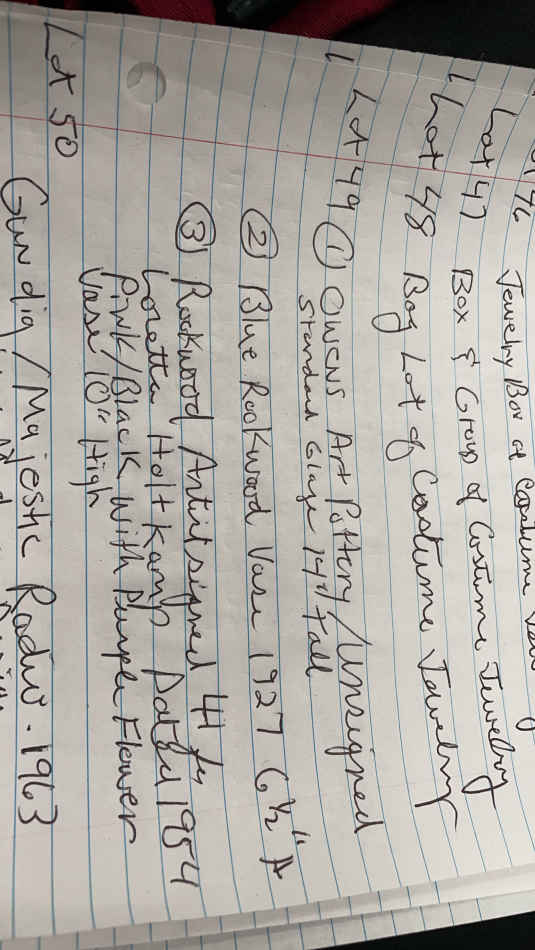 46 Jewelry Box of Costume
Lot 47 Box & Group of Costume Jewelry
Lot 48 Bag Lot of Costume Jewelry
Lot 49 ① Owens Art Pottery / Unsigned
Standard Glaze 14" Tall
② Blue Rookwood Vase 1927 6½"
③ Rookwood Artist signed
Loretta Holtkamp Dated 1954
Pink/Black with Purple Flower
Vase 10" High
Lot 50
Gundig / Majestic Radio - 1963